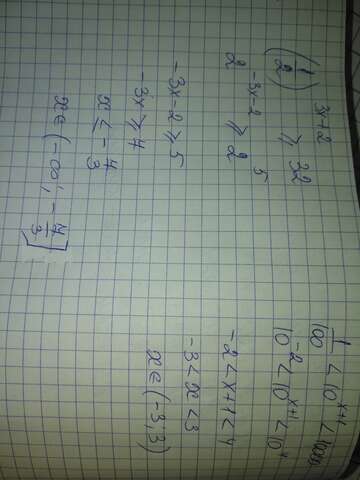 (1/2)^{3x-2} ≥ 32
2^{-3x-2} ≥ 2^5
-3x-2 ≥ 5
-3x ≥ 4
x ≤ -4/3
x ∈ (-∞; -4/3]
1/100 < 10^{x+1} < 10000
10^{-2} < 10^{x+1} < 10^4
-2 < x+1 < 4
-3 < x < 3
x ∈ (-3; 3)